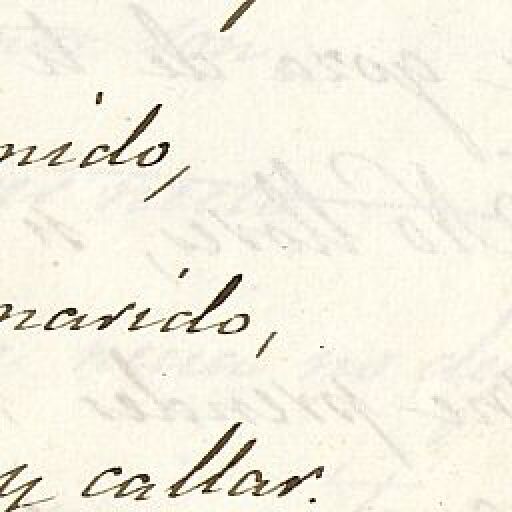 nido,
marido,
y callar.